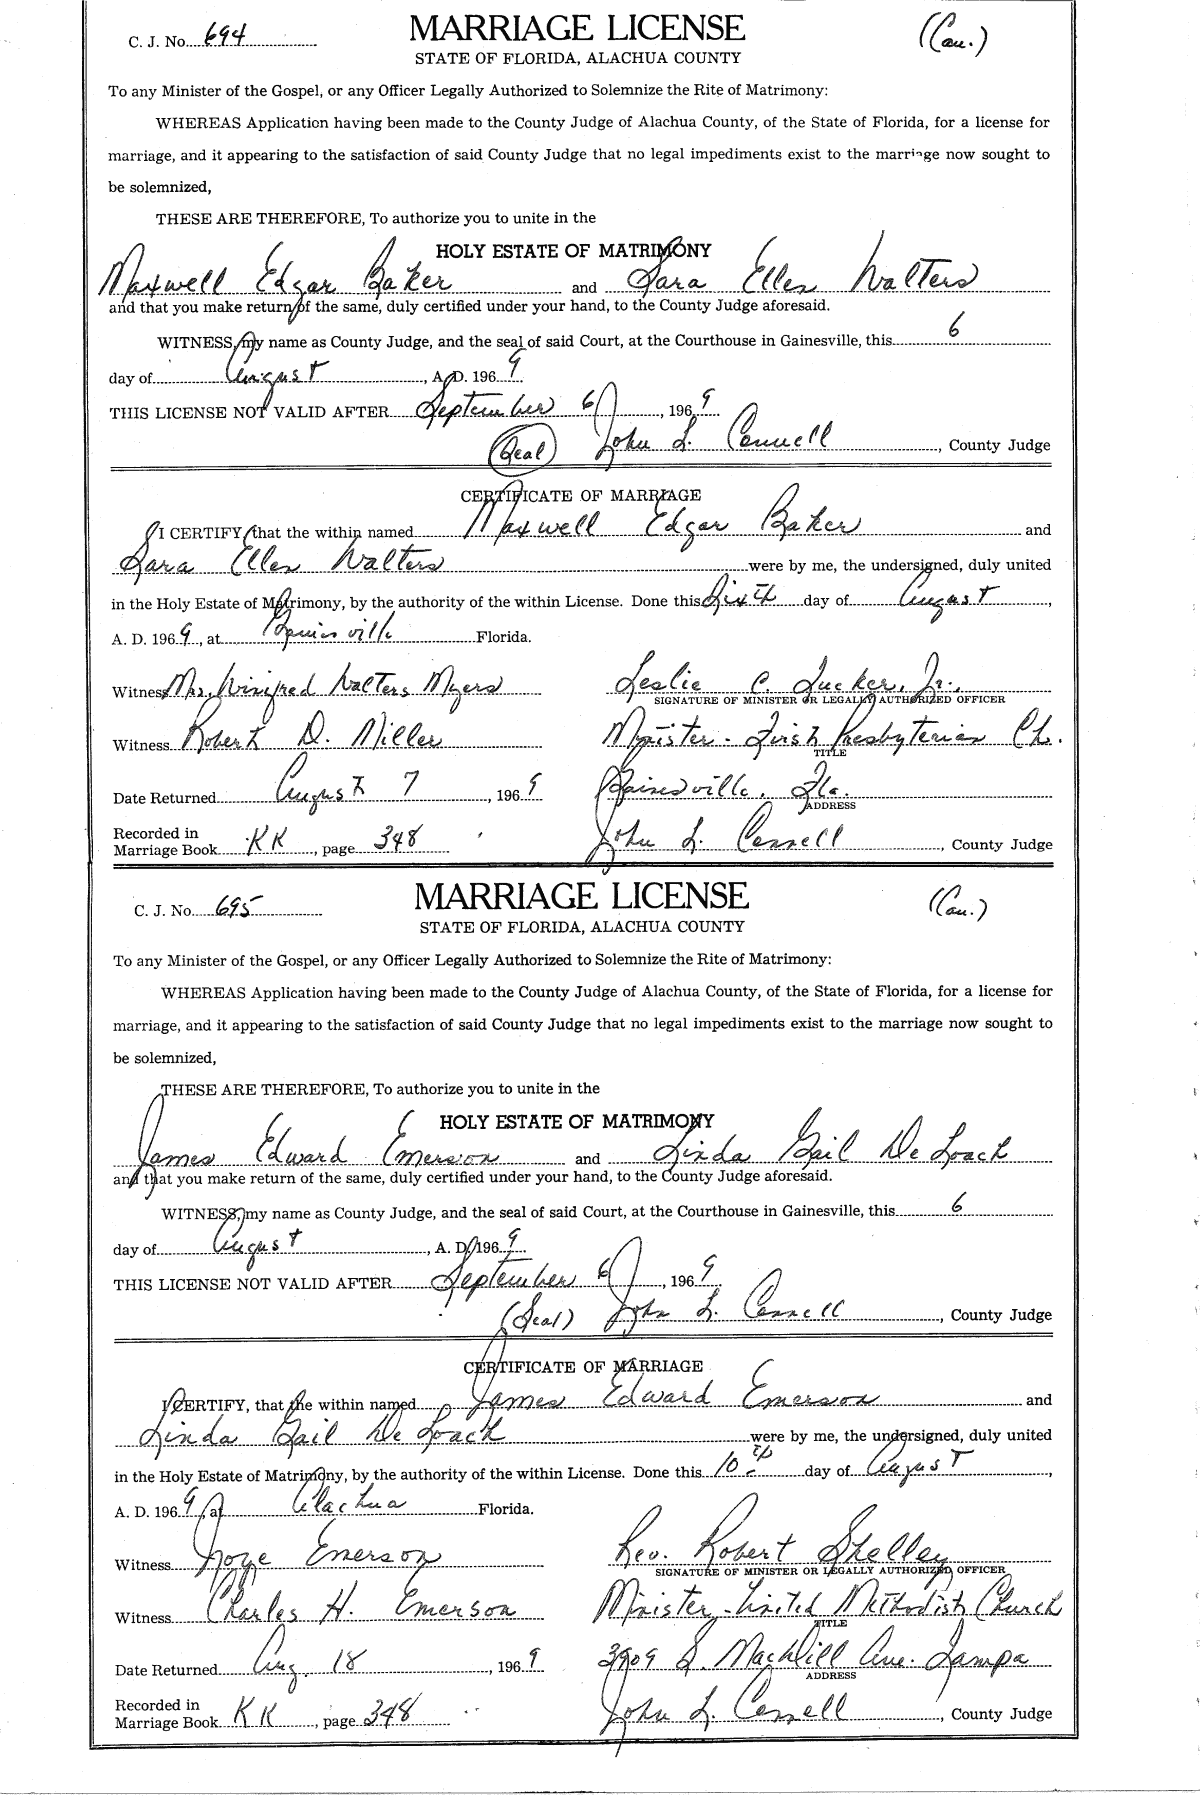 C. J. No. 694 MARRIAGE LICENSE (Cau.)
STATE OF FLORIDA, ALACHUA COUNTY
To any Minister of the Gospel, or any Officer Legally Authorized to Solemnize the Rite of Matrimony:
WHEREAS Application having been made to the County Judge of Alachua County, of the State of Florida, for a license for
marriage, and it appearing to the satisfaction of said County Judge that no legal impediments exist to the marriage now sought to
be solemnized,
THESE ARE THEREFORE, To authorize you to unite in the
HOLY ESTATE OF MATRIMONY
Maxwell Edgar Baker and Sara Ellen Walters
and that you make return of the same, duly certified under your hand, to the County Judge aforesaid.
WITNESS, my name as County Judge, and the seal of said Court, at the Courthouse in Gainesville, this 6
day of August, A. D. 1969
THIS LICENSE NOT VALID AFTER September 6, 1969
(Seal) John L. Connell, County Judge
CERTIFICATE OF MARRIAGE
I CERTIFY, that the within named Maxwell Edgar Baker and
Sara Ellen Walters were by me, the undersigned, duly united
in the Holy Estate of Matrimony, by the authority of the within License. Done this Sixth day of August,
A. D. 1969, at Gainesville Florida.
Witness Mrs. Winifred Walters Myers Leslie C. Tucker, Jr.,
SIGNATURE OF MINISTER OR LEGALLY AUTHORIZED OFFICER
Witness Robert D. Miller Minister - First Presbyterian Ch.
TITLE
Date Returned August 7, 1969 Gainesville, Fla.
ADDRESS
Recorded in
Marriage Book KK, page 348 John L. Connell, County Judge
C. J. No. 695 MARRIAGE LICENSE (Cau.)
STATE OF FLORIDA, ALACHUA COUNTY
To any Minister of the Gospel, or any Officer Legally Authorized to Solemnize the Rite of Matrimony:
WHEREAS Application having been made to the County Judge of Alachua County, of the State of Florida, for a license for
marriage, and it appearing to the satisfaction of said County Judge that no legal impediments exist to the marriage now sought to
be solemnized,
THESE ARE THEREFORE, To authorize you to unite in the
HOLY ESTATE OF MATRIMONY
James Edward Emerson and Linda Gail De Loach
and that you make return of the same, duly certified under your hand, to the County Judge aforesaid.
WITNESS, my name as County Judge, and the seal of said Court, at the Courthouse in Gainesville, this 6
day of August, A. D. 1969
THIS LICENSE NOT VALID AFTER September 6, 1969
(Seal) John L. Connell, County Judge
CERTIFICATE OF MARRIAGE
I CERTIFY, that the within named James Edward Emerson and
Linda Gail De Loach were by me, the undersigned, duly united
in the Holy Estate of Matrimony, by the authority of the within License. Done this 10th day of August,
A. D. 1969, at Alachua Florida.
Witness Emerson Rev. Robert Shelley
SIGNATURE OF MINISTER OR LEGALLY AUTHORIZED OFFICER
Witness Charles H. Emerson Minister - United Methodist Church
TITLE
Date Returned Aug. 18, 1969 3909 S. MacDill Ave. Tampa
ADDRESS
Recorded in
Marriage Book KK, page 348 John L. Connell, County Judge